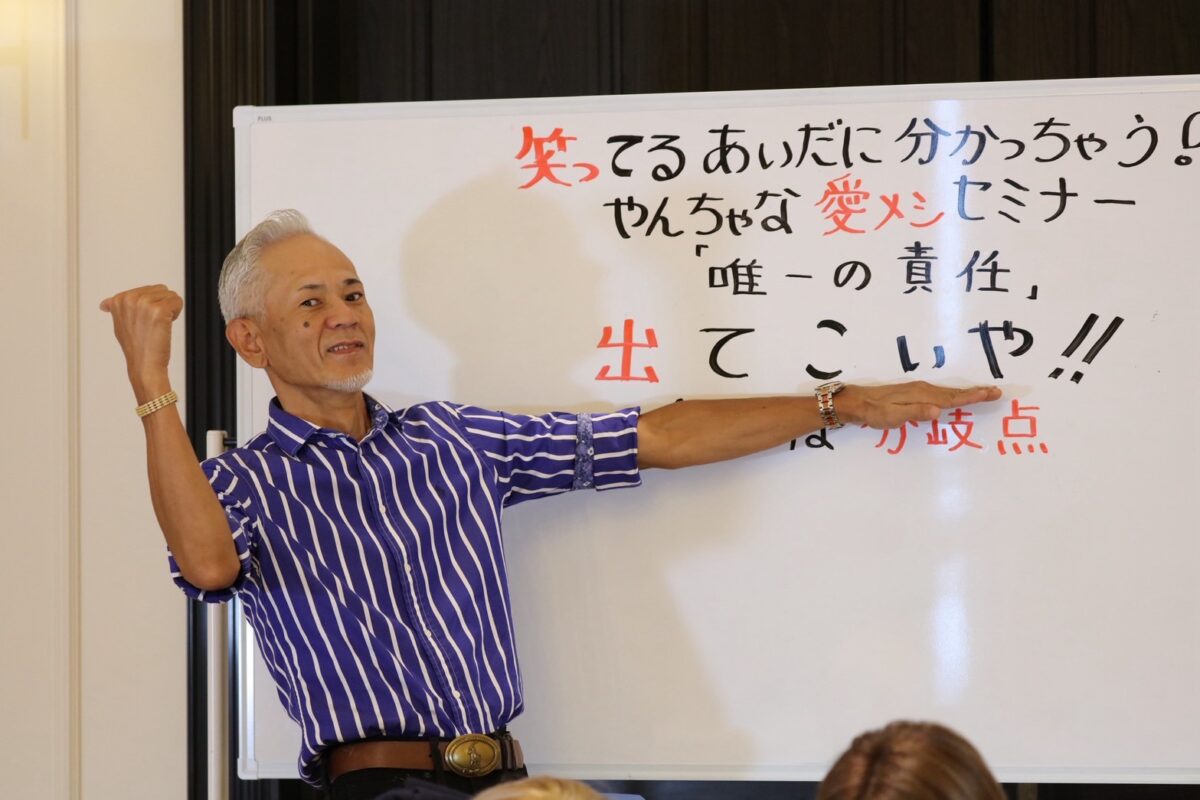 PLUS
笑ってるあいだに分かっちゃう!
やんちゃな愛メシセミナー
「唯一の責任」
出てこいや!!
は分岐点